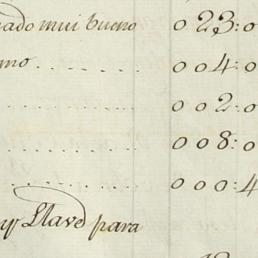 ado mui bueno 0 23:0
mo . . . . . . 0 0 4:0
. . . . . . . 0 0 2:0
. . . . . . . 0 0 8:0
. . . . . . . 0 0 0:4
y Llave para